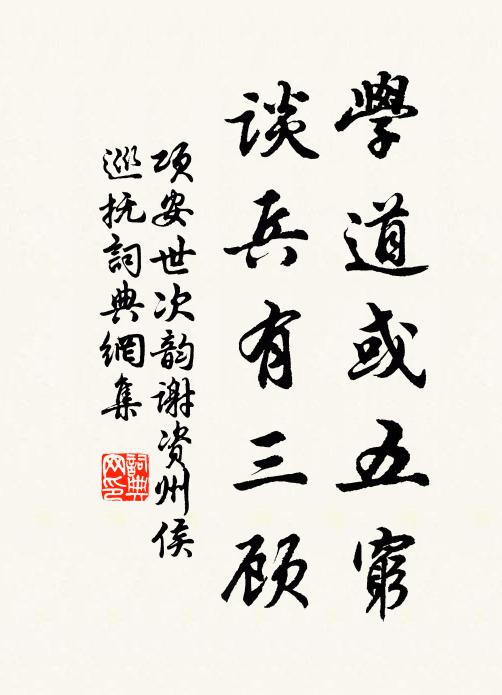 學道或五窮
谈兵有三顾
项安世次韵谢资州侯
巡抚詞典網集
詞典网印